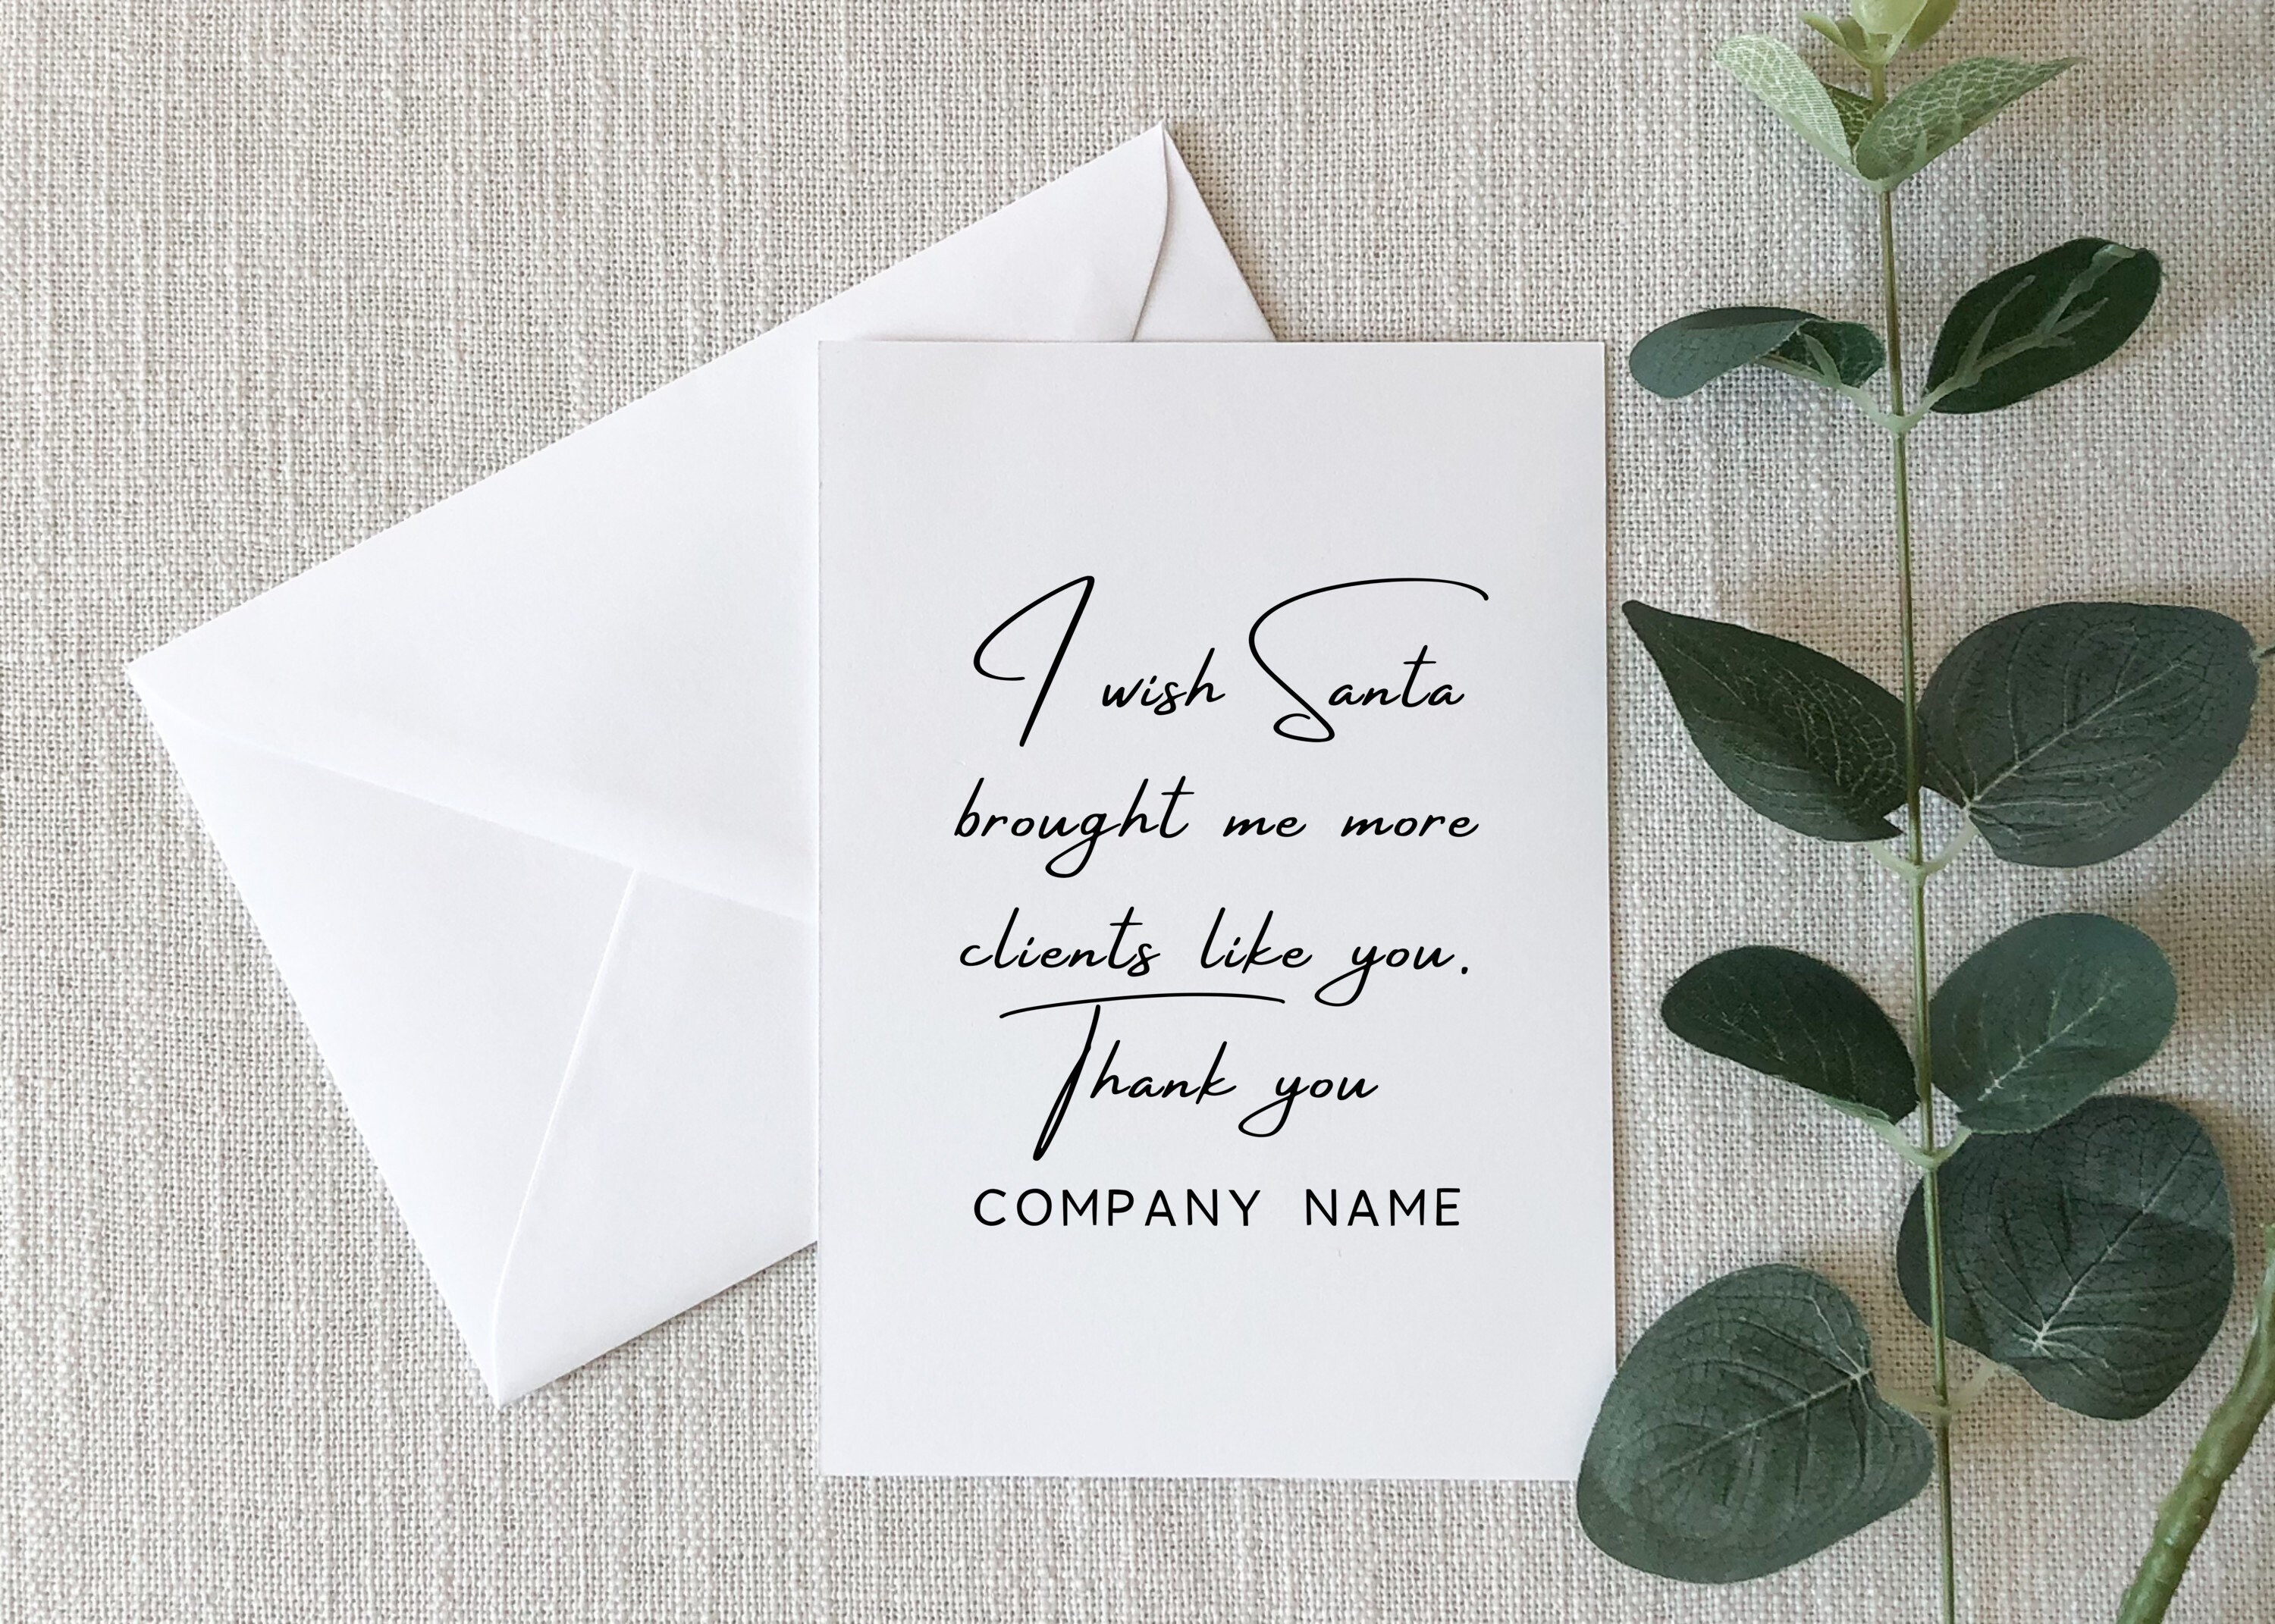 I wish Santa
brought me more
clients like you.
Thank you
COMPANY NAME